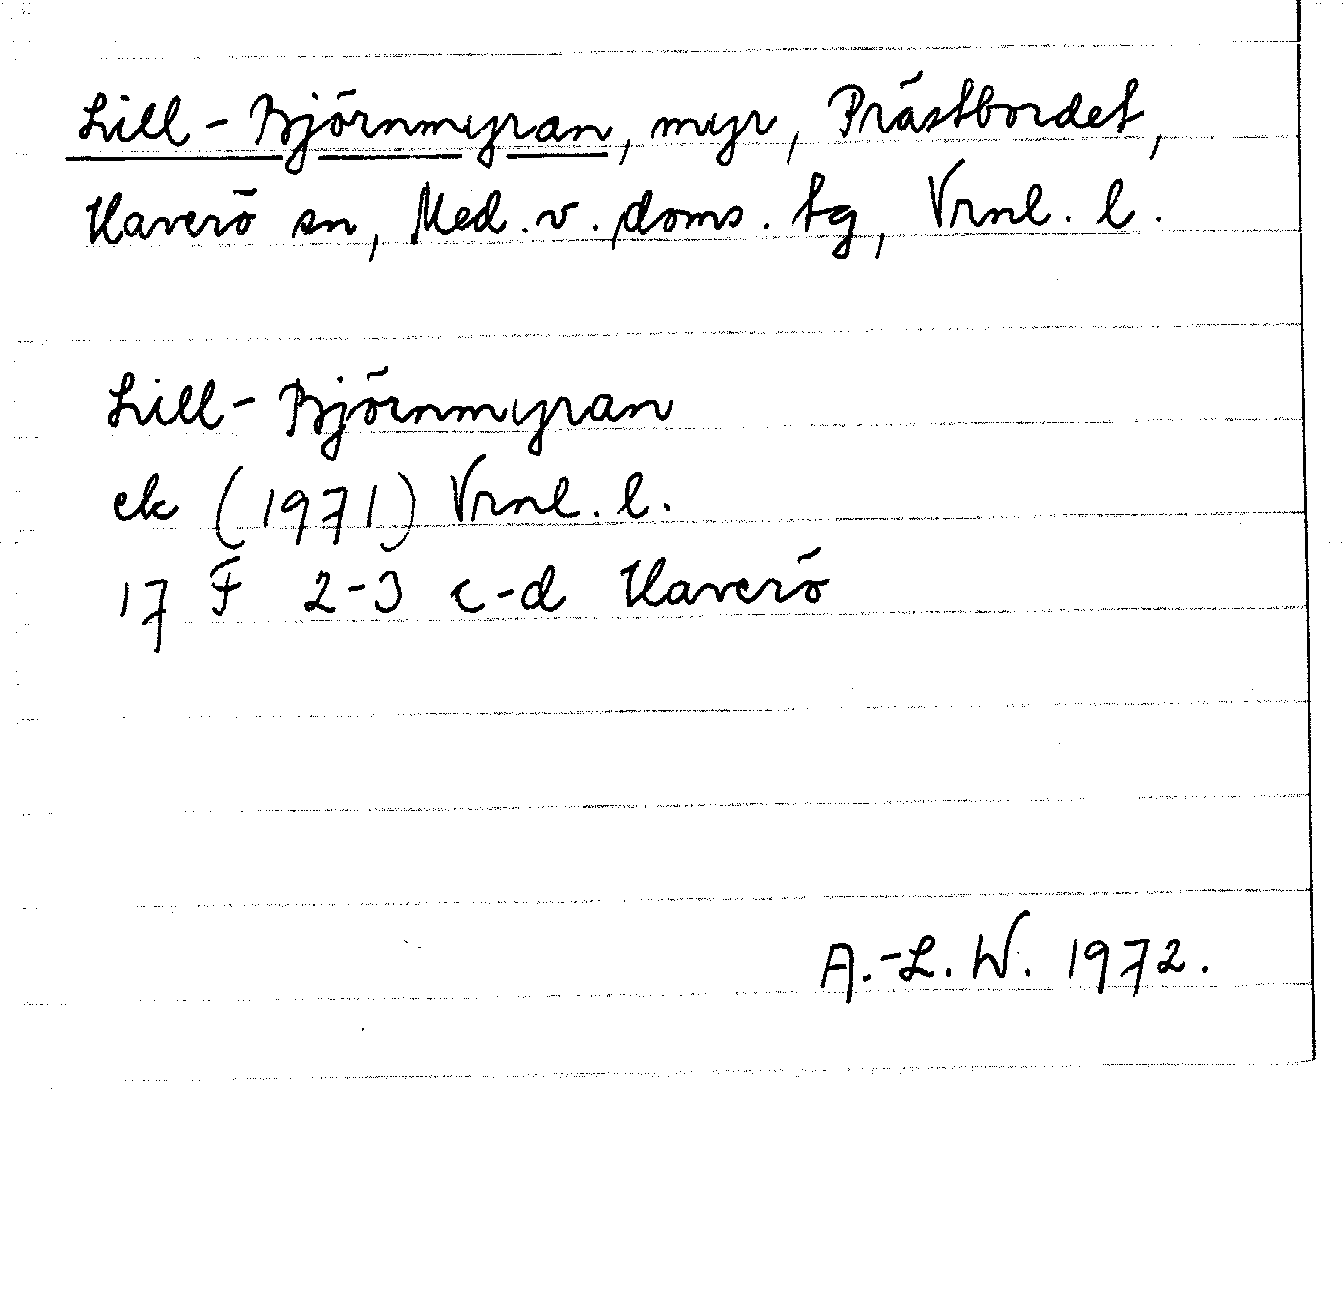 Lill-Björnmyran, myr, Prästbordet,
Haverö sn, Med. v. doms. tg, Vrnl. l.
Lill-Björnmyran
ek (1971) Vrnl. l.
17 F 2-3 c-d Haverö
A.-L. W. 1972.